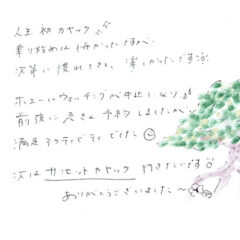 人生初カヤック
乗り始めは怖かったですが、
次第に慣れてきて、楽しかったです
ホエールウォッチングが中止になり
前後に急きょ予約しましたが
満足アクティビティでした
次はサンセットカヤック行きたいです
ありがとうございました〜